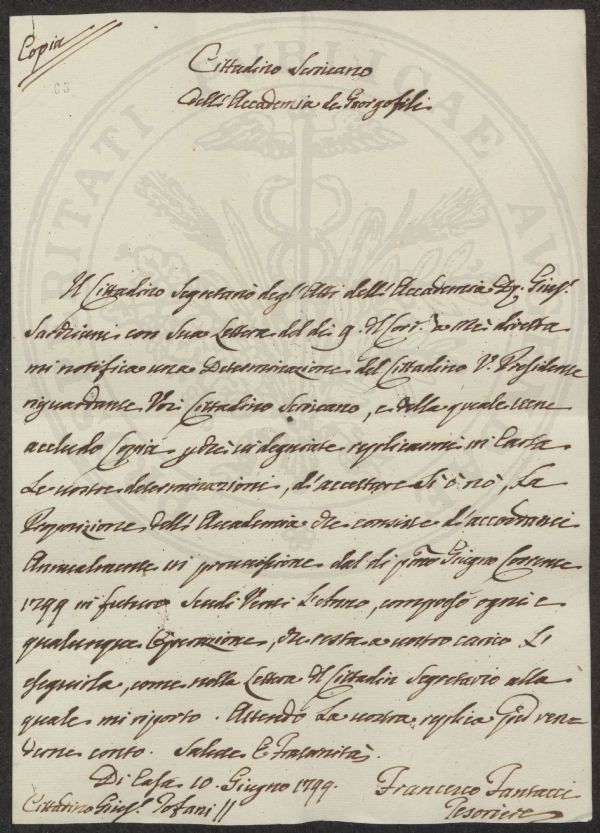 Copia
Cittadino Scrivano
dell'Accademia de Georgofili
Il Cittadino Segretario degl'Atti dell'Accademia Giuse.
con sua Lettera del dì 9. a Me diretta
mi notifica una Determinazione del Cittadino V. Presidente
riguardante Voi Cittadino Scrivano, e della quale vene
accludo Copia vi degniate replicarmi in Carta
Le vostre determinazioni, d'accettare Si ò nò, La
Proposizione dell'Accademia che consiste d'accordarvi
Annualmente di provvisione dal dì p.mo Giugno Corrente
1799 in futuro Scudi Venti L'Anno, compreso ogni e
qualunque Operazione, che resta a vostro carico L'
eseguirla, come nella Lettera Cittadin Segretario alla
quale mi riporto. Attendo La vostra replica ren
derne conto. Salute E Fratanità
Di Casa 10. Giugno 1799.
Francesco Fantacci
Cittadino Giuse. Tofani
Tesoriere
VERITATI PUBLICAE